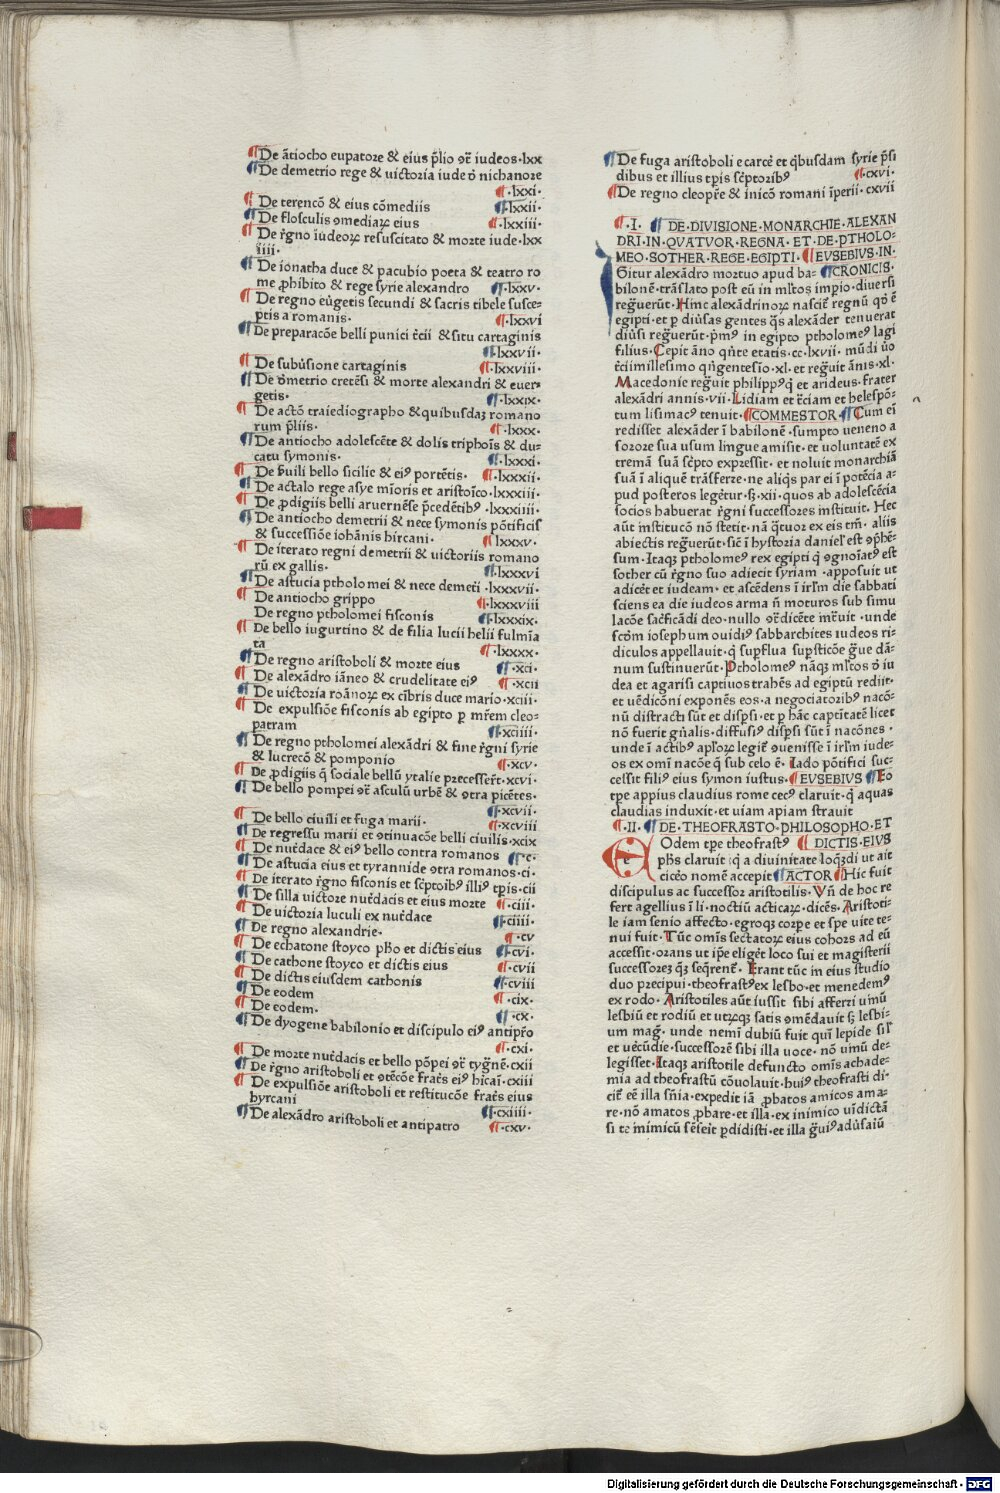 ¶De ãtiocho eupatore & eius p̃lio ɔt̃ iudeos·lxx
¶De demetrio rege & uictoria iude ð nichanore
¶·lxxi·
¶De terencõ & eius cõmediis ¶·lxxii·
¶De flosculis ɔmediaꝝ eius ¶·lxxiii·
¶De r̃gno iudeoꝝ resuscitato & morte iude·lxx
iiii·
¶De ionatha duce & pacubio poeta & teatro ro
me ꝓhibito & rege syrie alexandro ¶·lxxv·
¶De regno eũgetis secundi & sacris tibele susce-
ptis a romanis· ¶·lxxvi
¶De preparacõe belli punici t̃cii & situ cartaginis
¶·lxxvii·
¶De subũsione cartaginis ¶·lxxviii·
¶De ðmetrio cretẽsi & morte alexandri & euer-
getis· ¶·lxxix·
¶De actõ traiediographo & quibusdaꝫ romano
rum p̃liis· ¶·lxxx·
¶De antiocho adolescẽte & dolis triphoĩs & du-
catu symonis· ¶·lxxxi·
¶De s̃uili bello sicilie & eiꝰ portẽtis· ¶·lxxxii·
¶De actalo rege asye mĩoris et aristoĩco·lxxxiii·
¶De ꝓdigiis belli aruernẽse p̃cedẽtibꝰ·lxxxiiii·
¶De antiocho demetrii & nece symonis põtificis
& successiõe iohãnis hircani· ¶lxxxv·
¶De iterato regni demetrii & uictoriis romano
rũ ex gallis· ¶·lxxxvi
¶De astucia ptholomei & nece demet̃i·lxxxvii·
¶De antiocho grippo ¶·lxxxviii
De regno ptholomei fisconis ¶·lxxxix·
¶De bello iugurtino & de filia lucii helii fulmĩa
ta ¶·lxxxx·
¶De regno aristoboli & morte eius ¶·xci·
¶De alexãdro iãneo & crudelitate eiꝰ ¶·xcii
¶De uictoria roãnoꝝ ex cĩbris duce mario·xciii·
¶De expulsiõe fisconis ab egipto ꝑ mr̃em cleo-
patram ¶·xciiii·
¶De regno ptholomei alexãdri & fine r̃gni syrie
& lucrecõ & pomponio ¶·xcv·
¶De ꝓdigiis q̃ sociale bellũ ytalie precesser̃t·xcvi·
¶De bello pompei ɔt̃ asculũ urbẽ & ɔtra picẽtes·
¶·xcvii·
¶De bello ciuili et fuga marii· ¶·xcviii
¶De regressu marii et ɔtinuacõe belli ciuilis·xcix
¶De mit̃dace & eiꝰ bello contra romanos ¶·c·
¶De astucia eius et tyrannide ɔtra romanos·ci·
¶De iterato r̃gno fisconis et sc̃ptoibꝰ illiꝰ tp̃is·cii
¶De silla uictore mit̃dacis et eius morte ¶·ciii·
¶De uictoria luculi ex mit̃dace ¶·ciiii·
¶De regno alexandrie· ¶·cv
¶De echatone stoyco pho et dictis eius ¶·cvi·
¶De cathone stoyco et dictis eius ¶·cvii
¶De dictis eiusdem cathonis ¶·cviii
¶De eodem ¶·cix·
¶De eodem· ¶·cx·
¶De dyogene babilonio et discipulo eiꝰ antip̃ro
¶·cxi·
¶De morte mit̃dacis et bello põpei ɔt̃ tyg̃nẽ·cxii
¶De r̃gno aristoboli et ɔtẽcõe frat̃s eiꝰ hicaĩ·cxiii
¶De expulsiõe aristoboli et restitucõe frat̃s eius
hyrcani ¶·cxiiii·
¶De alexãdro aristoboli et antipatro ¶·cxv·
¶De fuga aristoboli e carcẽ et q̃busdam syrie p̃si
dibus et illius tp̃is sc̃ptoribꝰ ¶·cxvi·
¶De regno cleopr̃e & inicõ romani ĩperii·cxvii
¶·I· ¶DE·DIVISIONE·MONARCHIE·ALEXAN
DRI·IN·QVATVOR·REGNA·ET·DE·PTHOLO-
MEO·SOTHER·REGE·EGIPTI·¶EVSEBIVS·IN·
Gitur alexãdro mortuo apud ba-¶CRONICIS·
bilonẽ·trãslato post eũ in ml̃tos imꝑio·diuersi
reg̃uerũt·Hinc alexãdrinoꝝ nascit̃ regnũ qð ẽ
egipti·et ꝑ diũsas gentes q̃s alexãder tenuerat
diũsi reg̃uerũt·p̃mꝰ in egipto ptholomeꝰ lagi
filius·Cepit ãno qñte etatis·cc·lxvii·mũdi ũo
t̃ciimillesimo qñgentesĩo·xl·et reg̃uit ãnis·xl·
Macedonie reg̃uit philippꝰ q̃ et arideus·frater
alexãdri annis·vii·Lidiam et t̃ciam et helespõ-
tum lisimacꝰ tenuit·¶COMMESTOR·¶Cum eĩ
redisset alexãder ĩ babilonẽ·sumpto ueneno a
sorore sua usum lingue amisit·et uoluntatẽ ex
tremã suã sc̃pto expressit·et noluit monarchiã
suã ĩ aliquẽ trãsferre·ne aliq̃s par ei ĩ potẽcia a-
pud posteros legẽtur·ꝫ·xii·quos ab adolescẽcia
socios habuerat r̃gni successores instituit·Hec
aũt institucõ nõ stetit·nã q̃tuor ex eis tm̃·aliis
abiectis reg̃uerũt·sic̃ ĩ hystoria daniel̃ est ɔp̃hẽ-
sum·Itaqꝫ ptholomeꝰ rex egipti q̃ ɔgnoĩatꝰ est
sother cũ r̃gno suo adiecit syriam·apposuit ut
adicẽt et iudeam·et ascẽdens ĩ irl̃m die sabbati
sciens ea die iudeos arma ñ moturos sub simu
lacõe sac̃ficãdi deo·nullo ɔt̃dicẽte int̃uit·unde
scðm ioseph um ouidiꝰ sabbarchites iudeos ri-
diculos appellauit·q̃ supflua supsticõe g̃ue dã-
num sustinuerũt·Ptholomeꝰ nãqꝫ ml̃tos ð iu
dea et agarisi captiuos trahẽs ad egiptũ rediit·
et uẽdicõni exponẽs eos·a negociatoribꝰ nacõ-
nũ distracti sũt et disp̃si·et ꝑ hãc captĩtatẽ licet
nõ fuerit gñalis·diffusiꝰ disp̃si sũt ĩ nacõnes·
unde ĩ actibꝰ apl̃oꝝ legit̃ ɔuenisse ĩ irl̃m iude-
os ex omĩ nacõe q̃ sub celo ẽ·Iado põtifici suc-
cessit filiꝰ eius symon iustus·¶EVSEBIVS ¶Eo
tp̃e appius claudius rome cecꝰ claruit·q̃ aquas
claudias induxit·et uiam apiam strauit
¶·II·¶DE·THEOFRASTO·PHILOSOPHO·ET
Odem tp̃e theofrastꝰ ¶DICTIS·EIVS
phs̃ claruit iq̃ a diuinitate loqꝫdi ut ait
cicẽo nomẽ accepit ¶ACTOR ¶Hic fuit
discipulus ac successor aristotilis·Vñ de hoc re
fert agellius ĩ li·noctiũ acticaꝝ·dicẽs·Aristoti-
le iam senio affecto·egroqꝫ corꝑe et spe uite te-
nui fuit·Tũc omĩs sectatoꝝ eius cohors ad eũ
accessit·orans ut ip̃e eliget̃ loco sui et magisterii
successoreꝫ q̃ꝫ seq̃renẽ·Erant tũc in eius studio
duo precipui·theofrastꝰ ex lesbo·et menedemꝰ
ex rodo·Aristotiles aũt iussit sibi afferri uinũ
lesbiũ et rodiũ et utꝝqꝫ satis ɔmẽdauit ꝫ lesbi-
um mag̃·unde nemĩ dubiũ fuit quĩ lepide sil̃
et uẽcũdie·successorẽ sibi illa uoce·nõ uinũ de-
legisset·Itaqꝫ aristotile defuncto omĩs achade-
mia ad theofrastũ cõuolauit·huiꝰ theofrasti di-
cit̃ eẽ illa sñia·expedit iã ꝓbatos amicos ama-
re·nõ amatos ꝓbare·et illa·ex inimico uĩdictã
si te inimicũ sẽserit ꝑdidisti·et illa g̃uiꝰ adũsaiũ
Digitalisierung gefördert durch die Deutsche Forschungsgemeinschaft · DFG